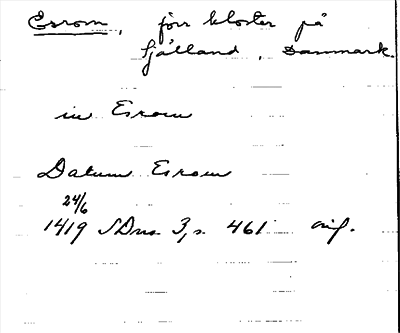 Esrom, förr kloster på
Själland, Danmark.
in Esrom
Datum Esrom
24/6
1419 SDns 3, s. 461 orig.